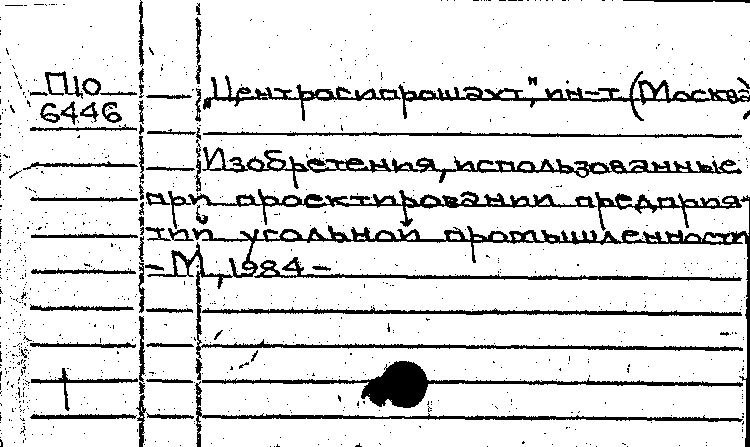 П10
6446
„Центрогипрошахт", ин-т (Москва)
Изобретения, использованные
при проектировании предприя-
тий угольной промышленности
– М., 1984 –